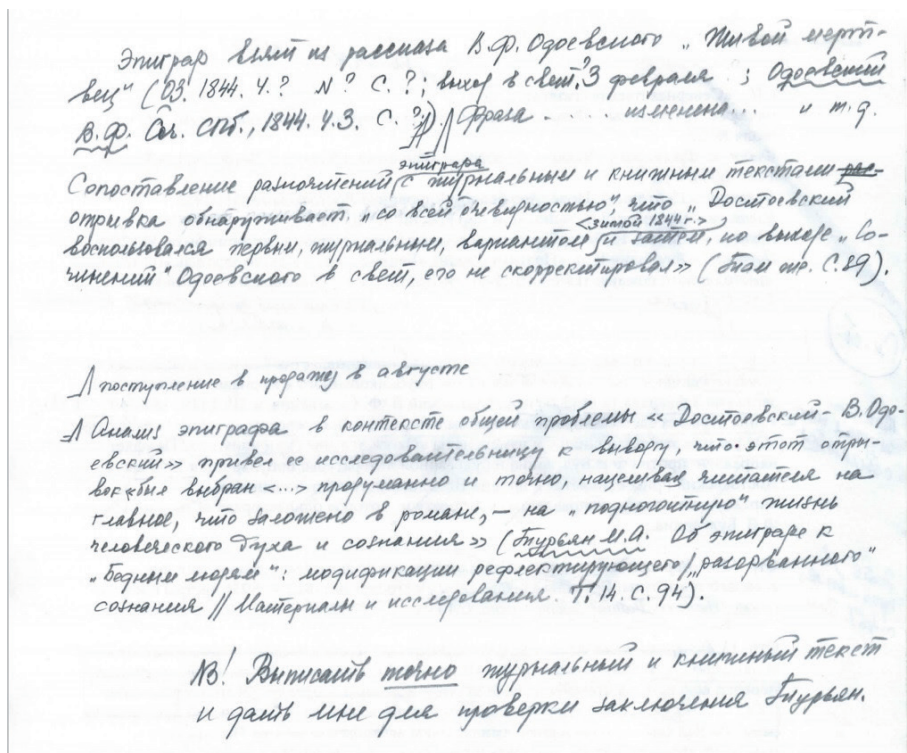 Эпиграф взят из рассказа В.Ф. Одоевского „Живой мерт-
вец“ (ОЗ. 1844. Ч.? N? С.?; выход в свет ? 3 февраля ; Одоевский
В.Ф. Соч. СПб., 1844. Ч.3. С. ?;) Фраза ..... изменена... и т.д.
эпиграфа
Сопоставление разночтений с журнальным и книжным текстами
отрывка обнаруживает „со всей очевидностью“, что „Достоевский
<зимой 1844 г.>
воспользовался первым, журнальным, вариантом и затем, по выходе „Со-
чинений“ Одоевского в свет, его не скорректировал» (Там же. С.89).
поступление в продажу в августе
Анализ эпиграфа в контексте общей проблемы «Достоевский – В. Одо-
евский» привел ее исследовательницу к выводу, что этот отры-
вок «был выбран <...> продуманно и точно, нацеливая читателя на
главное, что заложено в романе, – на „подноготную“ жизнь
человеческого духа и сознания» (Турьян М.А. Об эпиграфе к
„Бедным людям“: модификации рефлектирующего / „разорванного“
сознания // Материалы и исследования. Т. 14. С. 94).
NB! Выписать точно журнальный и книжный текст
и дать мне для проверки заключения Турьян.